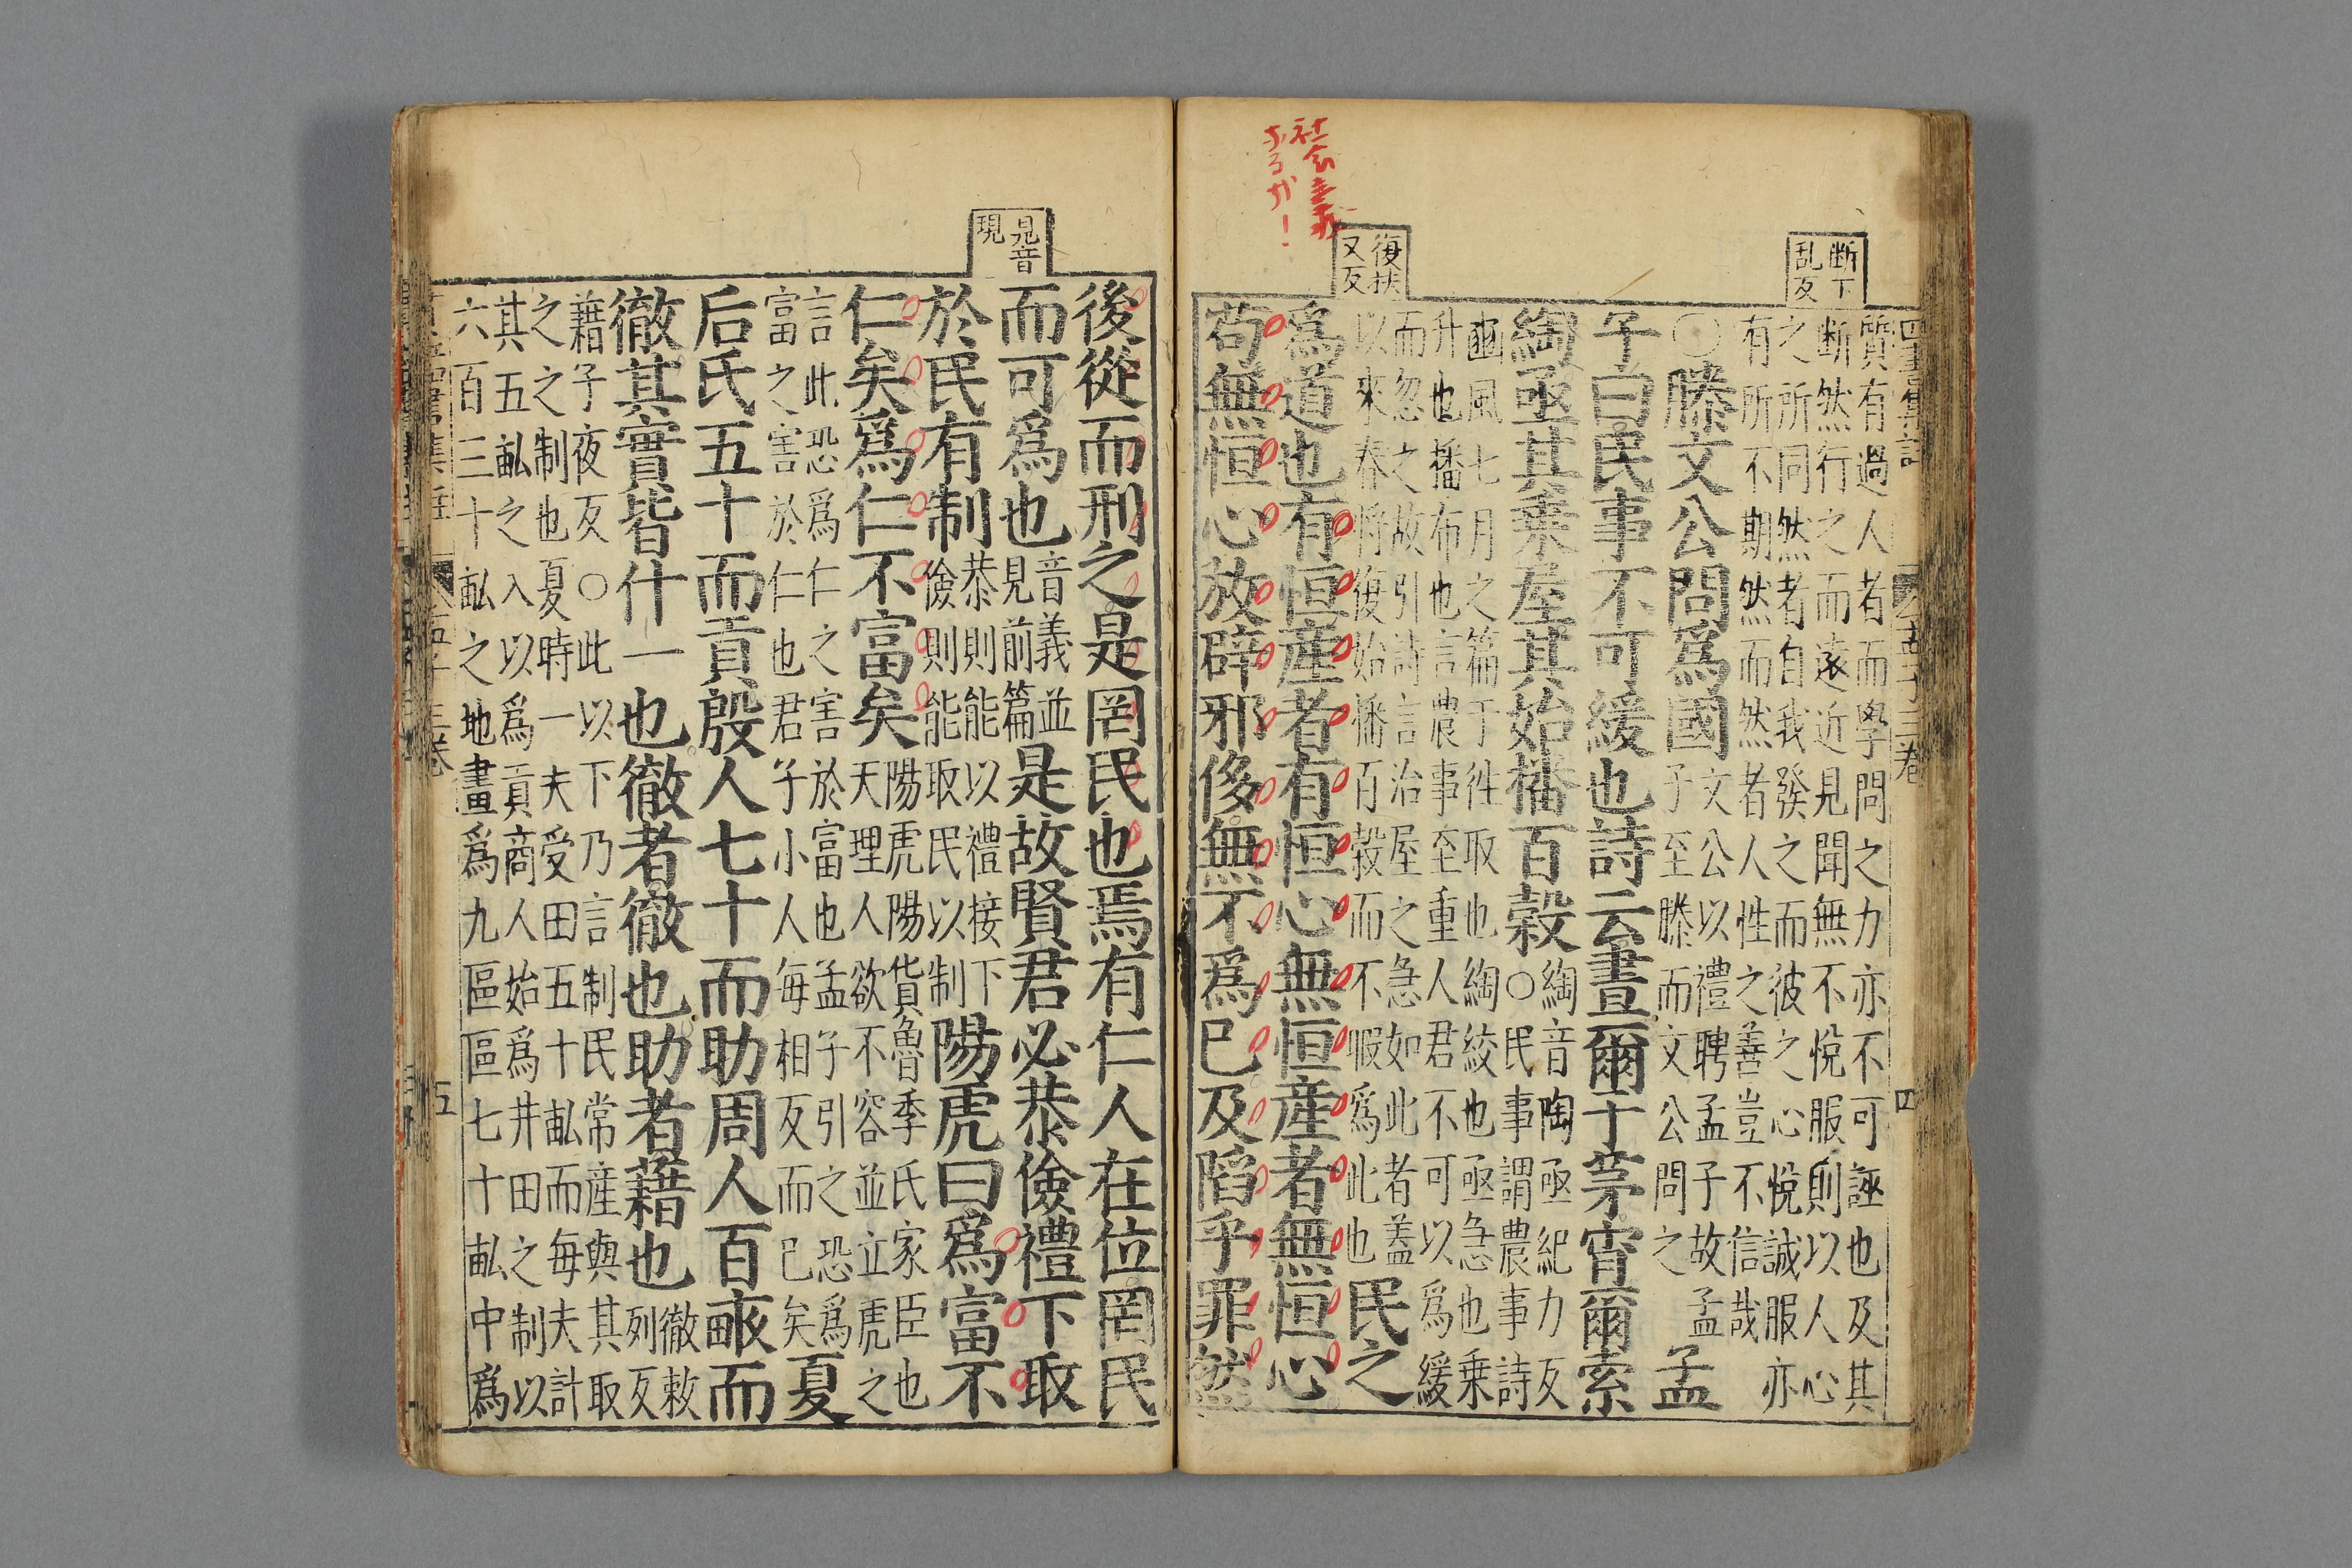 断下
乱反
復扶
又反
社会主義
質有過人者而學問之力亦不可誣也及其
断然行之而遠近見聞無不悅服則以人心
之所同然者自我發之而彼之心悅誠服亦
有所不期然而然者人性之善豈不信哉
○滕文公問爲國文公以禮聘孟子故孟子至滕而文公問之孟
子曰民事不可緩也詩云晝爾于茅宵爾索
綯亟其乗屋其始播百穀綯音陶亟紀力反○民事謂農事詩
豳風七月之篇于徃取也綯絞也亟急也乗
升也播布也言農事至重人君不可以爲緩
而忽之故引詩言治屋之急如此者蓋以來春將復始播百穀而不暇爲此也民之
爲道也有恒産者有恒心無恒産者無恒心
苟無恒心放辟邪侈無不爲已及陷乎罪然
見音
現
後從而刑之是罔民也焉有仁人在位罔民
而可爲也音義並見前篇是故賢君必恭儉禮下取
於民有制恭則能以禮接下儉則能取民以制陽虎曰爲富不
仁矣爲仁不富矣陽虎陽貨魯季氏家臣也天理人欲不容並立虎之
言此恐爲仁之害於富也孟子引之恐爲富之害於仁也君子小人每相反而已矣夏
后氏五十而貢殷人七十而助周人百畝而
徹其實皆什一也徹者徹也助者藉也徹敕列反
藉子夜反○此以下乃言制民常産與其取
之之制也夏時一夫受田五十畝而每夫計
其五畝之入以爲貢商人始爲井田之制以
六百三十畝之地畫爲九區區七十畝中爲